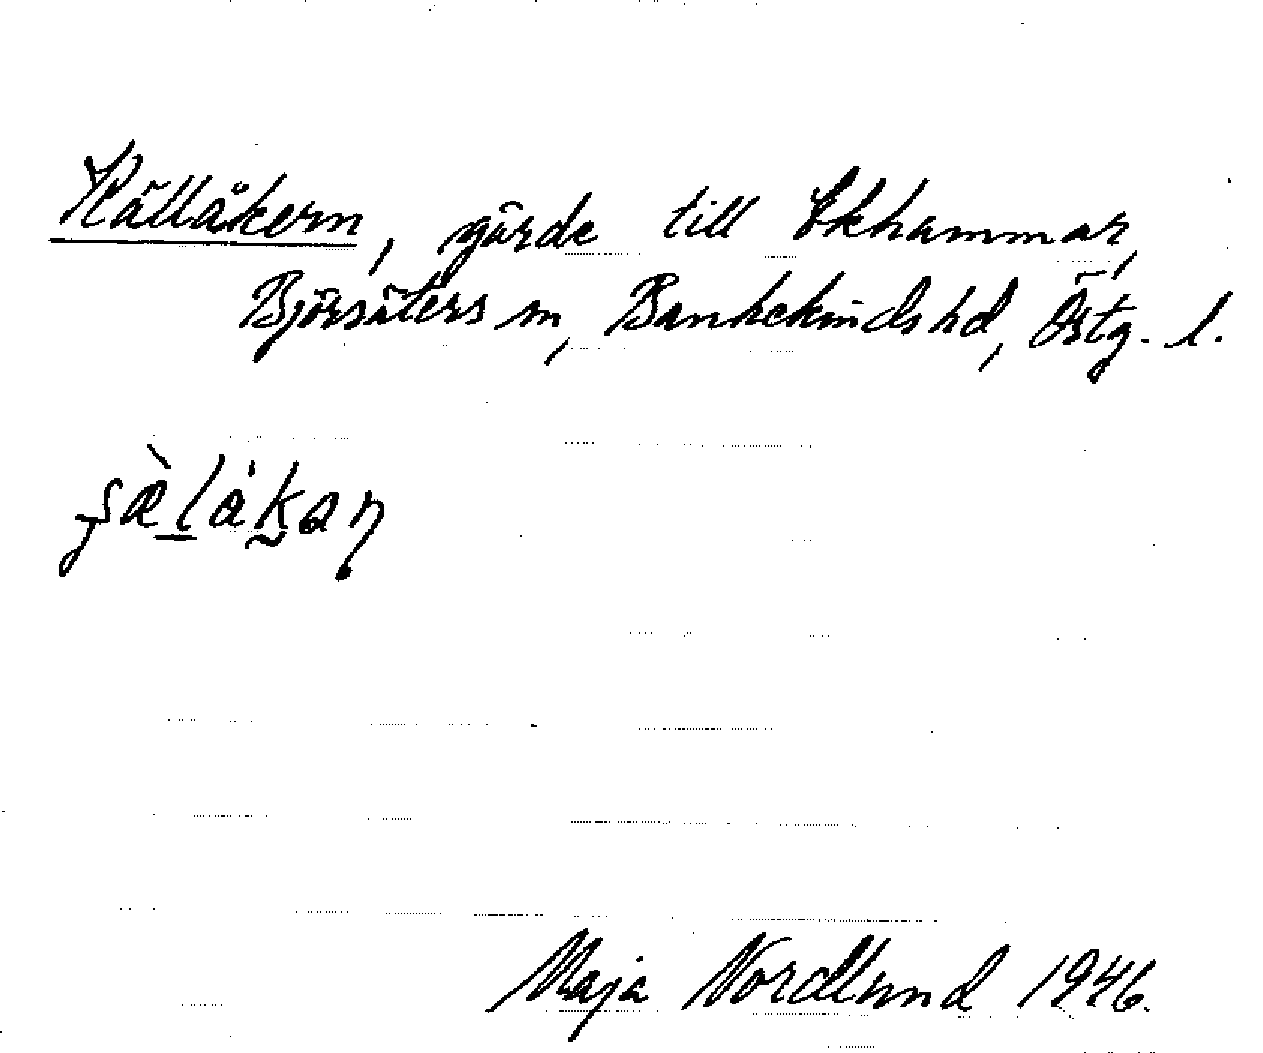 Källåkern, gärde till Ekhammar,
Björsäters sn, Bankekinds hd, Östg. l.
Maja Nordlund 1946.